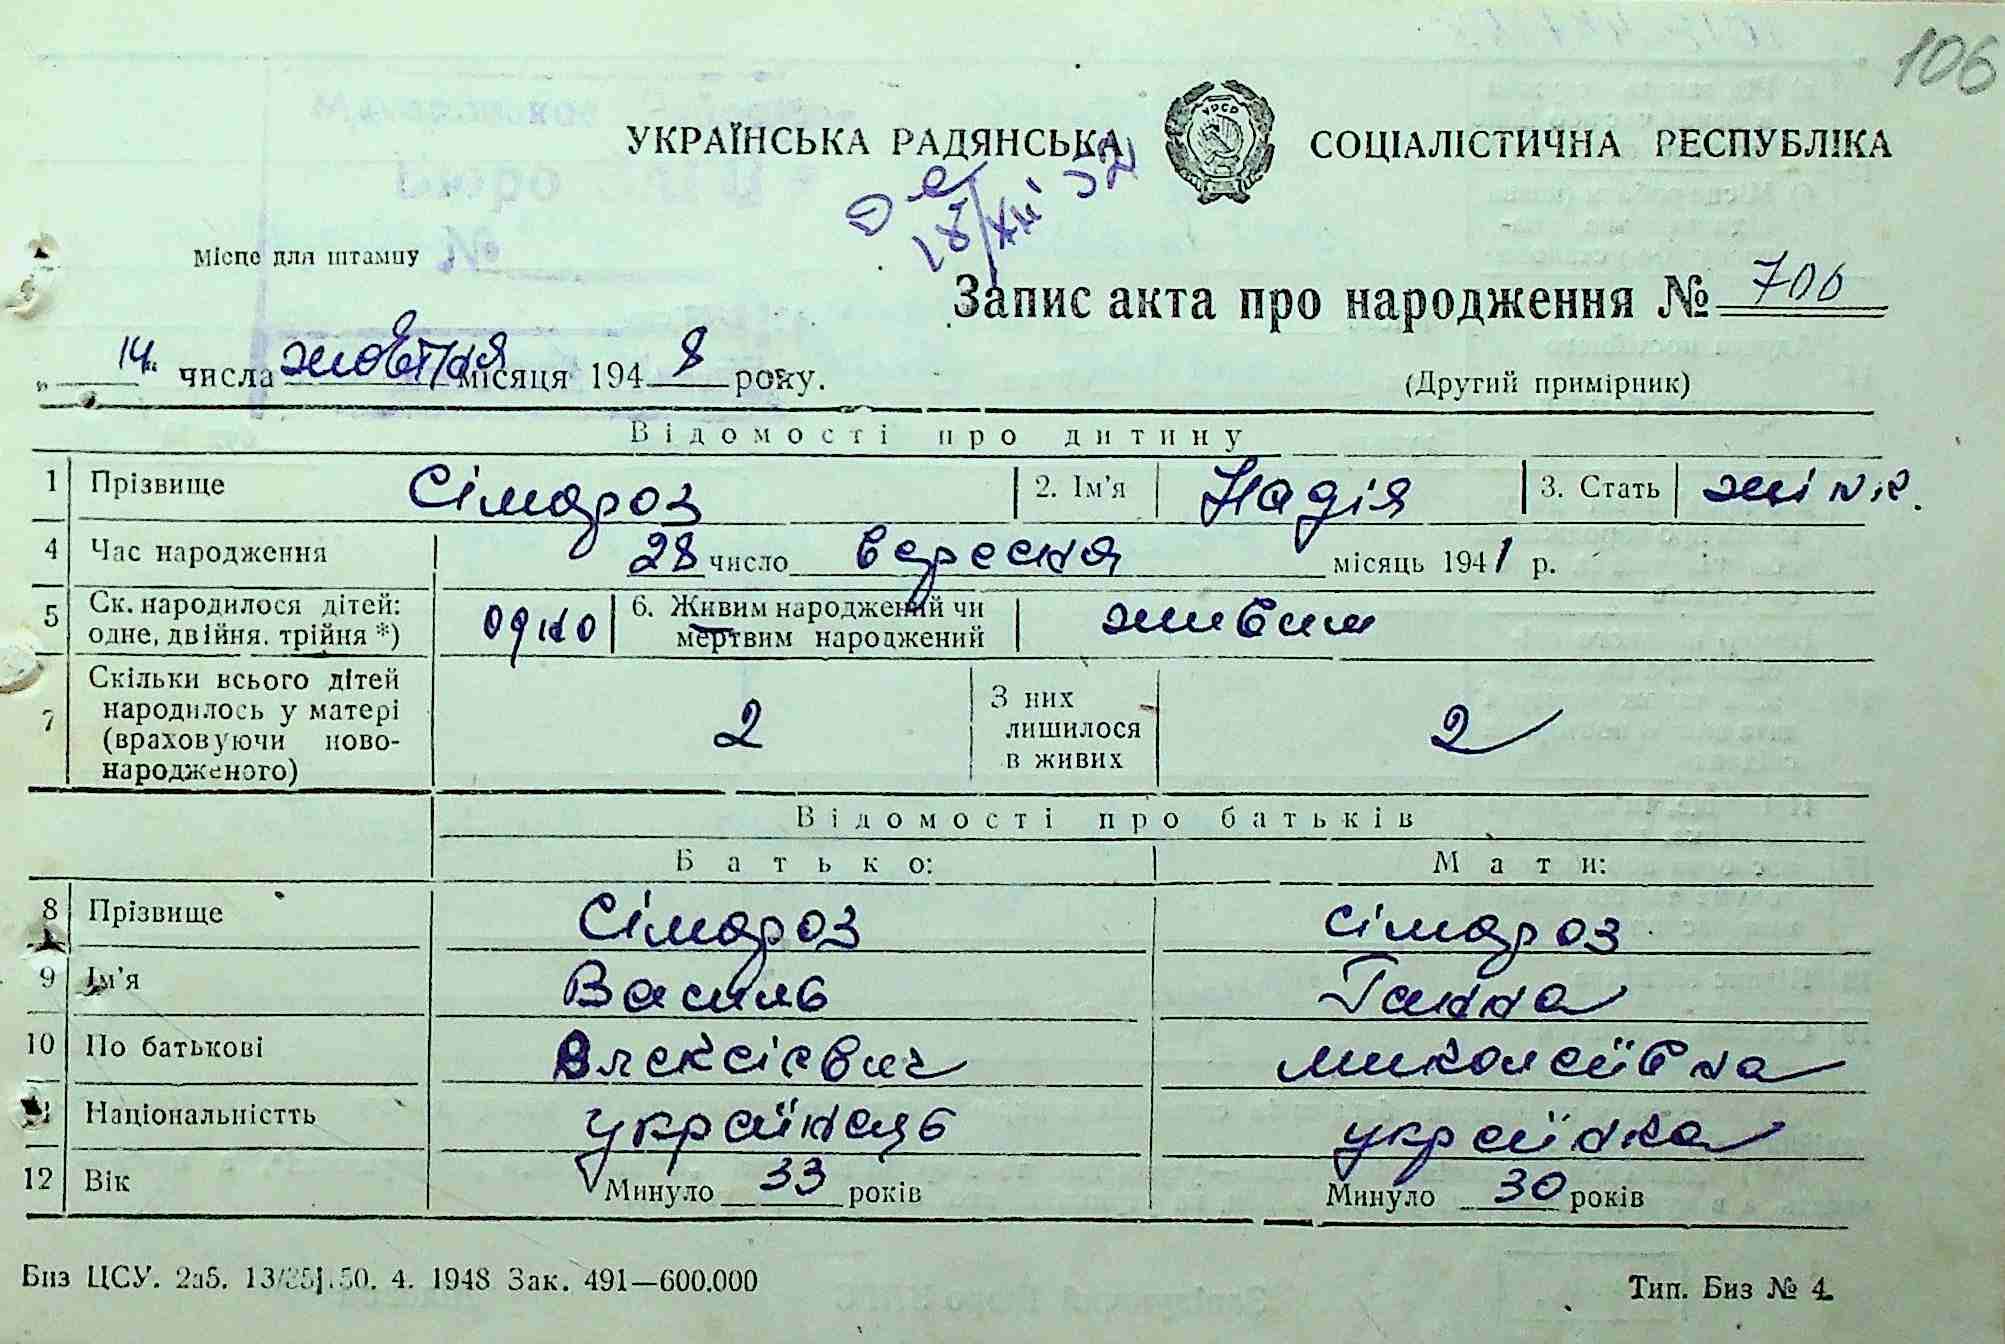 106
УКРАЇНСЬКА РАДЯНСЬКА СОЦІАЛІСТИЧНА РЕСПУБЛІКА
УРСР
18/XII 52
Місце для штампу
Запис акта про народження № 706
„ 14 “ числа жовтня місяця 194 8 року.
(Другий примірник)
Відомості про дитину
1 Прізвище Сімароз 2. Ім’я Надія 3. Стать жінк.
4 Час народження 28 число вересня місяць 1941 р.
5 Ск. народилося дітей: одне, двійня. трійня *) одно 6. Живим народжений чи мертвим народжений живим
7 Скільки всього дітей народилось у матері (враховуючи новонародженого) 2 З них лишилося в живих 2
Відомості про батьків
Батько: Мати:
8 Прізвище Сімароз Сімароз
9 Ім’я Василь Ганна
10 По батькові Олексієвич Миколаївна
11 Національністть українець українка
12 Вік Минуло 33 років Минуло 30 років
Биз ЦСУ. 2а5. 13/35j.50. 4. 1948 Зак. 491—600.000
Тип. Биз № 4.